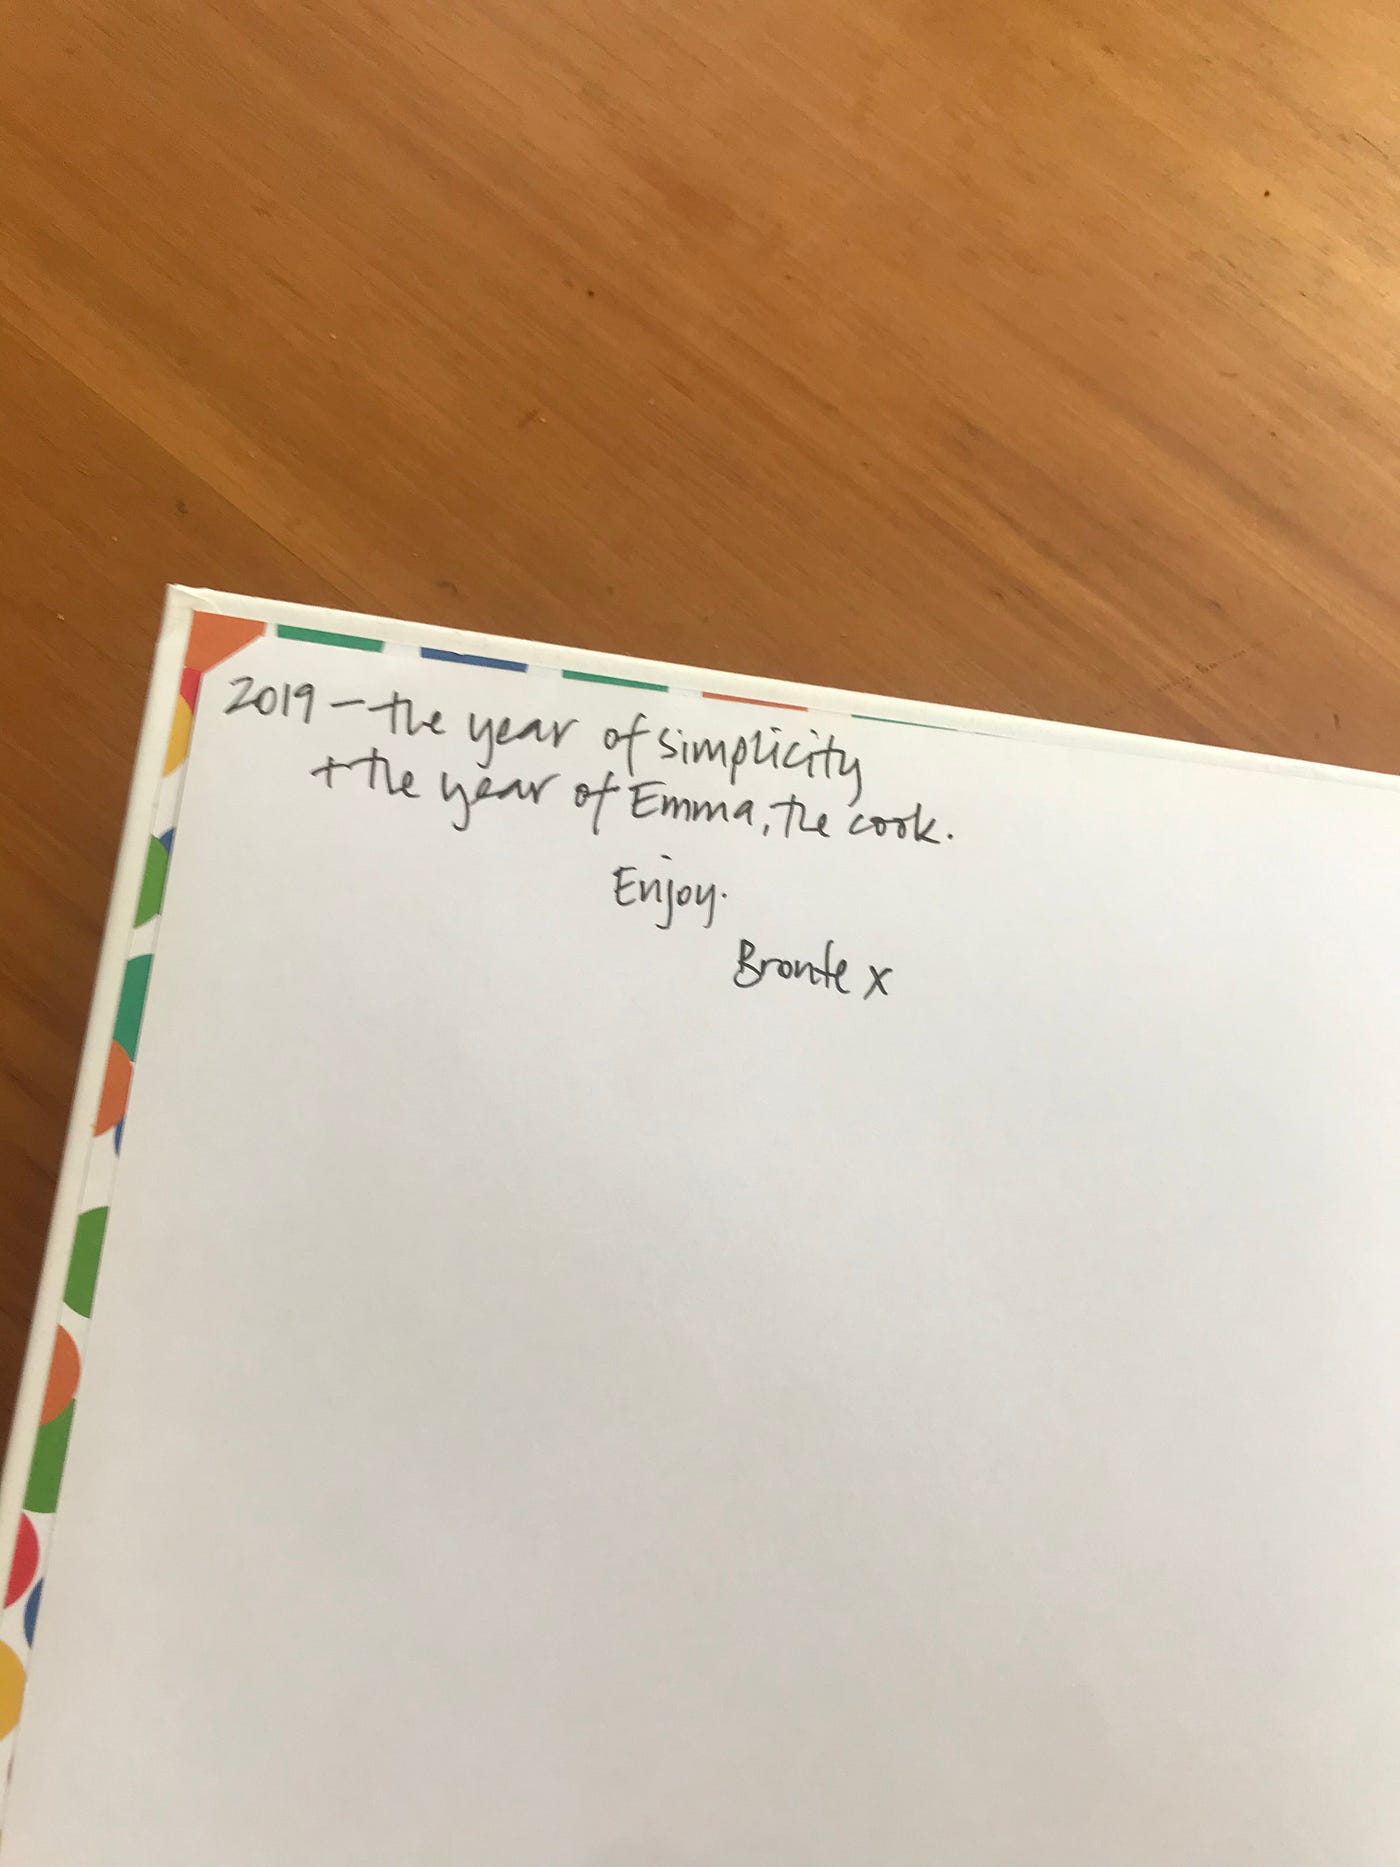 2019 – the year of simplicity
+ the year of Emma, the cook.
Enjoy.
Bronte x